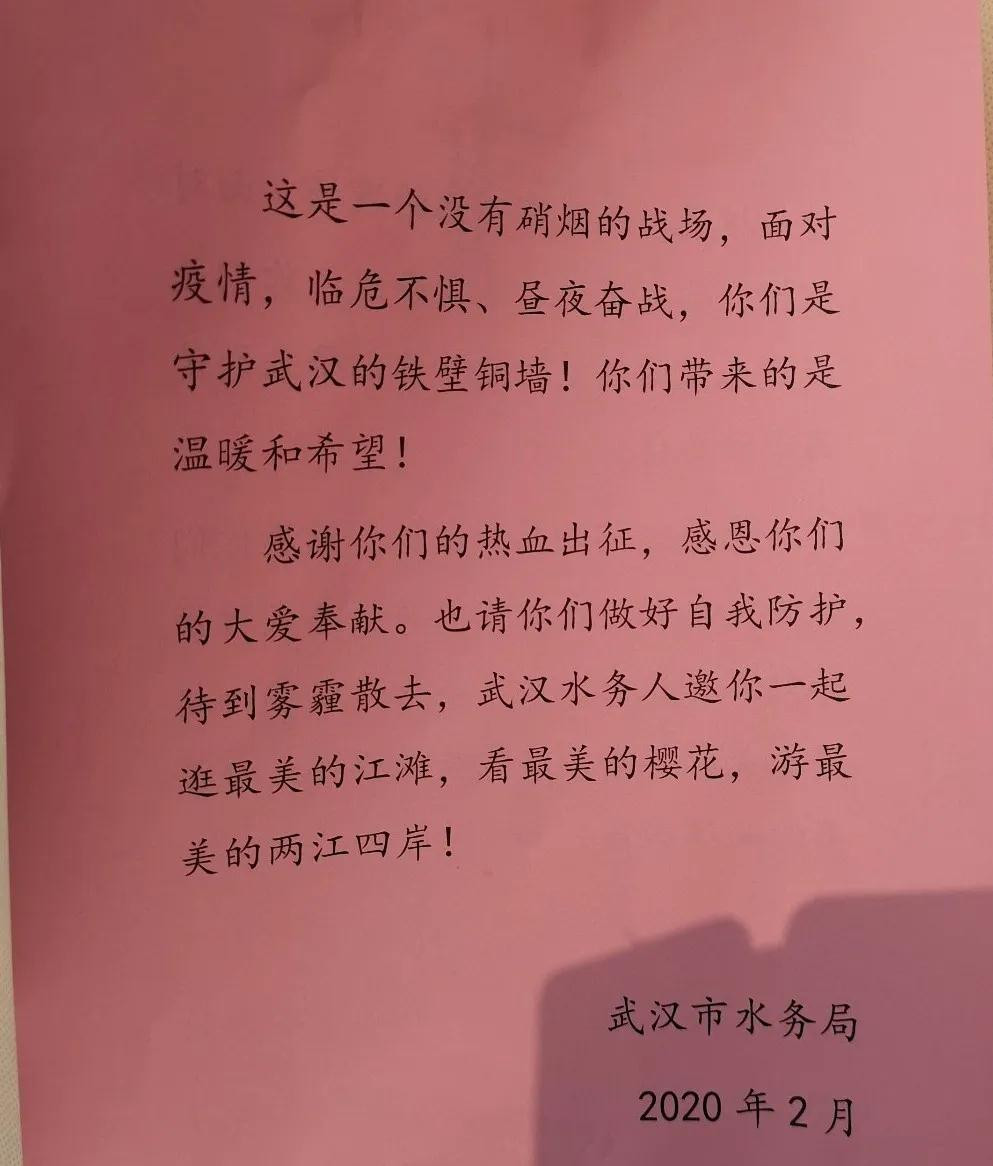 这是一个没有硝烟的战场，面对
疫情，临危不惧、昼夜奋战，你们是
守护武汉的铁壁铜墙！你们带来的是
温暖和希望！
感谢你们的热血出征，感恩你们
的大爱奉献。也请你们做好自我防护，
待到雾霾散去，武汉水务人邀你一起
逛最美的江滩，看最美的樱花，游最
美的两江四岸！
武汉市水务局
2020 年 2 月